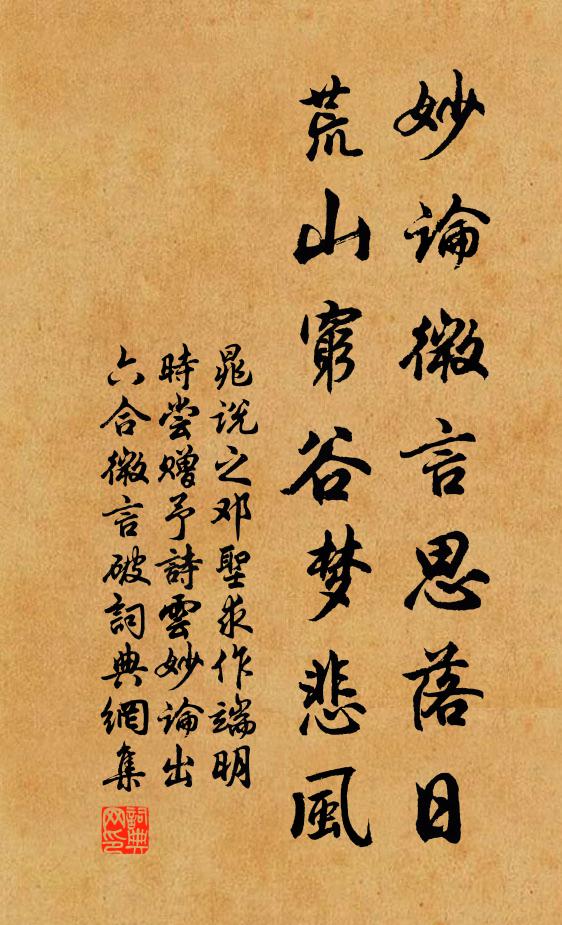 妙論微言思落日
荒山窮谷梦悲風
晁说之邓聖求作端明
時尝赠予詩雲妙論出
六合微言破詞典網集
詞典
网印